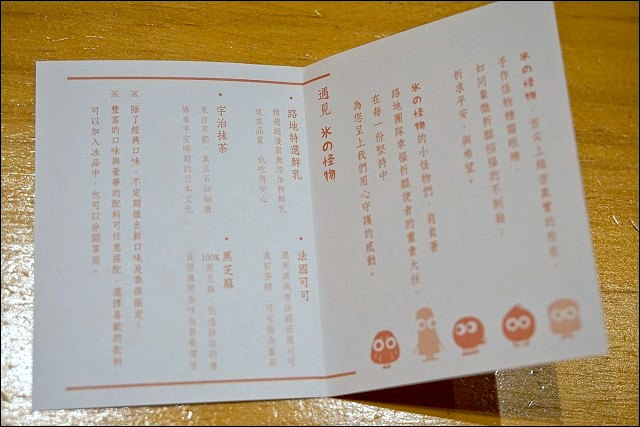 氷の怪物，舌尖上綿密真實的
手作怪物精靈眼燒，
如同象徵祈願招福的不倒翁；
祈求平安，與希望。
氷の怪物的小怪物們，肩負著
路地團隊幸福祈願使者的重責大任，
在每一份堅持中
為您呈上我們用心守護的感動。
遇見 氷の怪物
• 路地特選鮮乳
精選超優質無添加物鮮乳
追求品質，也吃得安心
• 法國可可
選用高純度法國莊園可可
濃郁香醇，可可脂含量高
• 宇治抹茶
來自京都，真正石臼細磨
傳承平安時期的日本文化
• 黑芝麻
100%黑芝麻，低溫烘焙研磨
保留濃厚香味及營養價值
※ 除了經典口味，不定期推出新口味及季節限定！
※ 豐富的口味與豪華的配料可任意搭配，選擇喜歡的配料，
可以加入冰品中，也可以分開享用。